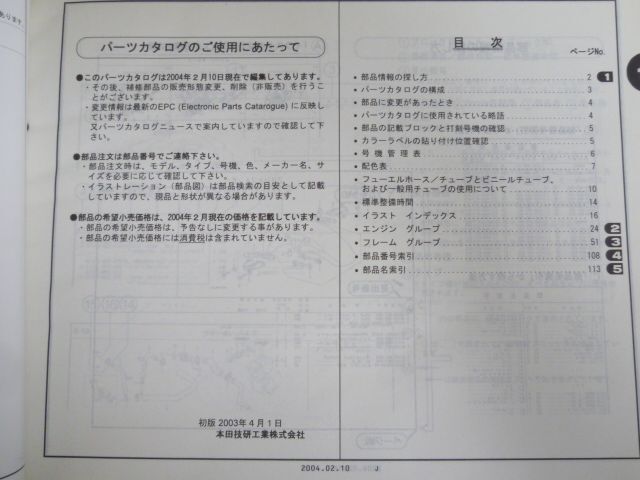 あります
パーツカタログのご使用にあたって
●このパーツカタログは2004年2月10日現在で編集してあります。
・その後、補修部品の販売形態変更、削除（非販売）を行うこ
とがございます。
・変更情報は最新のEPC (Electronic Parts Catarogue) に反映し
ています。
又パーツカタログニュースで案内していますので確認して下
さい。
●部品注文は部品番号でご連絡下さい。
・部品注文時は、モデル、タイプ、号機、色、メーカー名、サ
イズを必要に応じて確認して下さい。
・イラストレーション（部品図）は部品検索の目安として記載
していますので、現品と形状が異なる場合があります。
●部品の希望小売価格は、2004年2月現在の価格を記載しています。
・部品の希望小売価格は、予告なしに変更する事があります。
・部品の希望小売価格には消費税は含まれていません。
初版 2003年4月1日
本田技研工業株式会社
目 次
ページNo.
・部品情報の探し方 2 1
・パーツカタログの構成 3
・部品に変更があったとき 4
・パーツカタログに使用されている略語 4
・部品の記載ブロックと打刻号機の確認 5
・カラーラベルの貼り付け位置確認 5
・号機管理表 6
・配色表 7
・フューエルホース／チューブとビニールチューブ、
および一般用チューブの使用について 10
・標準整備時間 14
・イラスト インデックス 16
・エンジン グループ 24 2
・フレーム グループ 51 3
・部品番号索引 108 4
・部品名索引 113 5
2004.02.10 J